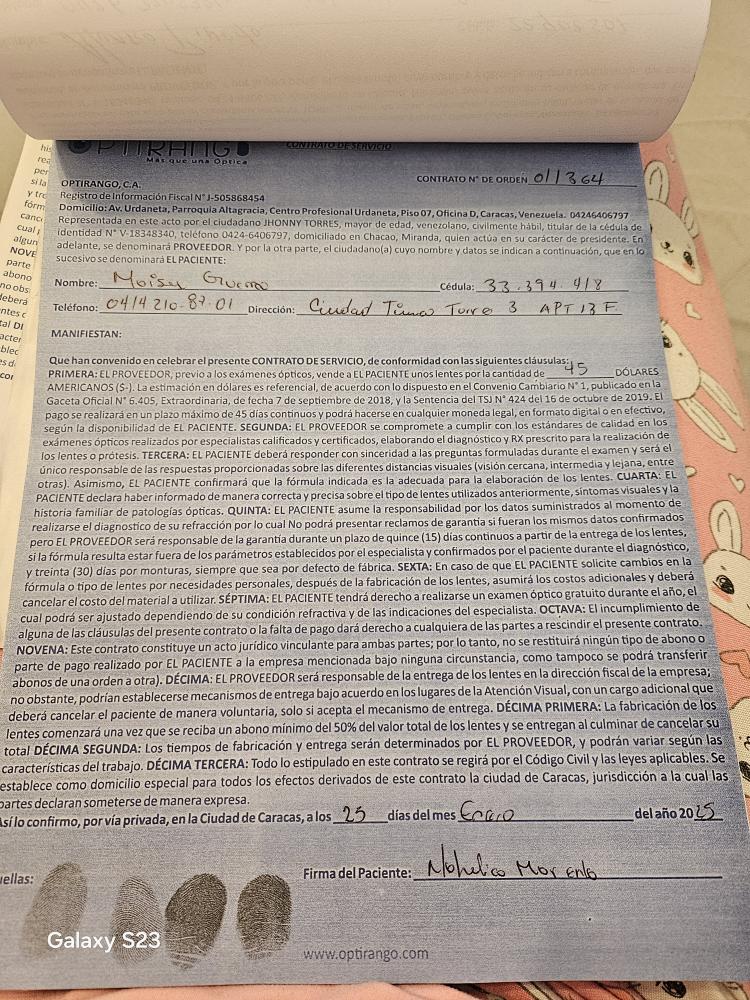 OPTIRANGO
Más que una Optica
CONTRATO DE SERVICIO
OPTIRANGO, C.A.
CONTRATO N° DE ORDEN 011364
Registro de Información Fiscal N° J-505868454
Domicilio: Av. Urdaneta, Parroquia Altagracia, Centro Profesional Urdaneta, Piso 07, Oficina D, Caracas, Venezuela. 04246406797
Representada en este acto por el ciudadano JHONNY TORRES, mayor de edad, venezolano, civilmente hábil, titular de la cédula de
identidad N° V-18348340, teléfono 0424-6406797, domiciliado en Chacao, Miranda, quien actúa en su carácter de presidente. En
adelante, se denominará PROVEEDOR. Y por la otra parte, el ciudadano(a) cuyo nombre y datos se indican a continuación, que en lo
sucesivo se denominará EL PACIENTE:
Nombre: Moises Guerrero Cédula: 33.394.418
Teléfono: 0414 210-87-01 Dirección: Ciudad Torre 3 APT 13 F
MANIFIESTAN:
Que han convenido en celebrar el presente CONTRATO DE SERVICIO, de conformidad con las siguientes cláusulas:
PRIMERA: EL PROVEEDOR, previo a los exámenes ópticos, vende a EL PACIENTE unos lentes por la cantidad de 45 DÓLARES
AMERICANOS ($-). La estimación en dólares es referencial, de acuerdo con lo dispuesto en el Convenio Cambiario N° 1, publicado en la
Gaceta Oficial N° 6.405, Extraordinaria, de fecha 7 de septiembre de 2018, y la Sentencia del TSJ N° 424 del 16 de octubre de 2019. El
pago se realizará en un plazo máximo de 45 días continuos y podrá hacerse en cualquier moneda legal, en formato digital o en efectivo,
según la disponibilidad de EL PACIENTE. SEGUNDA: EL PROVEEDOR se compromete a cumplir con los estándares de calidad en los
exámenes ópticos realizados por especialistas calificados y certificados, elaborando el diagnóstico y RX prescrito para la realización de
los lentes o prótesis. TERCERA: EL PACIENTE deberá responder con sinceridad a las preguntas formuladas durante el examen y será el
único responsable de las respuestas proporcionadas sobre las diferentes distancias visuales (visión cercana, intermedia y lejana, entre
otras). Asimismo, EL PACIENTE confirmará que la fórmula indicada es la adecuada para la elaboración de los lentes. CUARTA: EL
PACIENTE declara haber informado de manera correcta y precisa sobre el tipo de lentes utilizados anteriormente, síntomas visuales y la
historia familiar de patologías ópticas. QUINTA: EL PACIENTE asume la responsabilidad por los datos suministrados al momento de
realizarse el diagnostico de su refracción por lo cual No podrá presentar reclamos de garantía si fueran los mismos datos confirmados
pero EL PROVEEDOR será responsable de la garantía durante un plazo de quince (15) días continuos a partir de la entrega de los lentes,
si la fórmula resulta estar fuera de los parámetros establecidos por el especialista y confirmados por el paciente durante el diagnóstico,
y treinta (30) días por monturas, siempre que sea por defecto de fábrica. SEXTA: En caso de que EL PACIENTE solicite cambios en la
fórmula o tipo de lentes por necesidades personales, después de la fabricación de los lentes, asumirá los costos adicionales y deberá
cancelar el costo del material a utilizar. SÉPTIMA: EL PACIENTE tendrá derecho a realizarse un examen óptico gratuito durante el año, el
cual podrá ser ajustado dependiendo de su condición refractiva y de las indicaciones del especialista. OCTAVA: El incumplimiento de
alguna de las cláusulas del presente contrato o la falta de pago dará derecho a cualquiera de las partes a rescindir el presente contrato.
NOVENA: Este contrato constituye un acto jurídico vinculante para ambas partes; por lo tanto, no se restituirá ningún tipo de abono o
parte de pago realizado por EL PACIENTE a la empresa mencionada bajo ninguna circunstancia, como tampoco se podrá transferir
abonos de una orden a otra). DÉCIMA: EL PROVEEDOR será responsable de la entrega de los lentes en la dirección fiscal de la empresa;
no obstante, podrían establecerse mecanismos de entrega bajo acuerdo en los lugares de la Atención Visual, con un cargo adicional que
deberá cancelar el paciente de manera voluntaria, solo si acepta el mecanismo de entrega. DÉCIMA PRIMERA: La fabricación de los
lentes comenzará una vez que se reciba un abono mínimo del 50% del valor total de los lentes y se entregan al culminar de cancelar su
total DÉCIMA SEGUNDA: Los tiempos de fabricación y entrega serán determinados por EL PROVEEDOR, y podrán variar según las
características del trabajo. DÉCIMA TERCERA: Todo lo estipulado en este contrato se regirá por el Código Civil y las leyes aplicables. Se
establece como domicilio especial para todos los efectos derivados de este contrato la ciudad de Caracas, jurisdicción a la cual las
partes declaran someterse de manera expresa.
Así lo confirmo, por vía privada, en la Ciudad de Caracas, a los 25 días del mes Enero del año 2025
ellas:
Firma del Paciente: Nohelica Moreno
www.optirango.com
Galaxy S23